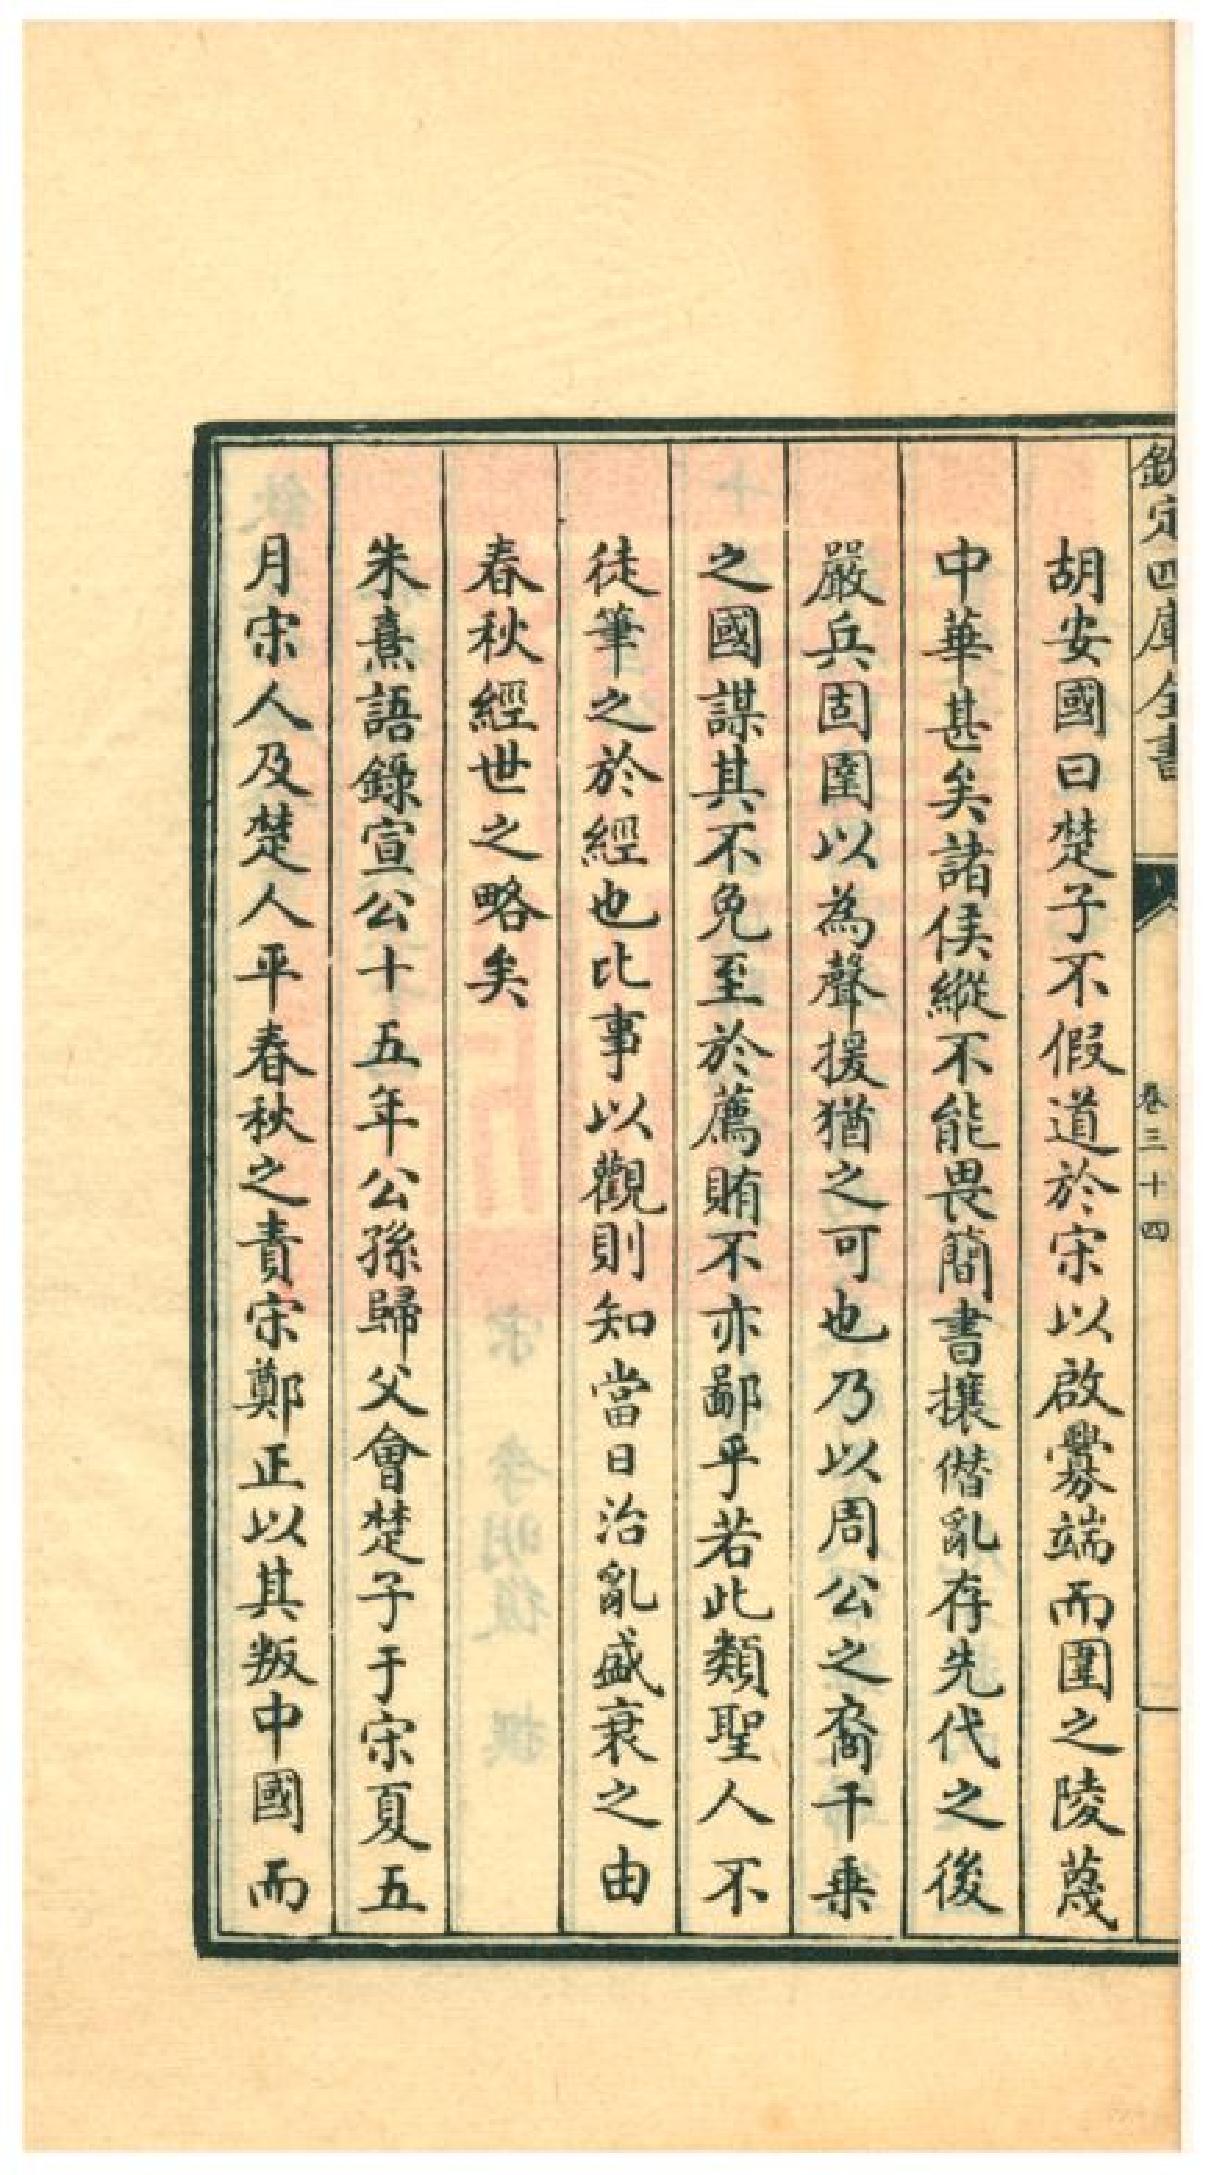 欽定四庫全書
卷三十四
胡安國曰楚子不假道於宋以啟釁端而圍之陵蔑
中華甚矣諸侯縱不能畏簡書攘僭亂存先代之後
嚴兵固圉以為聲援猶之可也乃以周公之裔千乗
之國謀其不免至於薦賄不亦鄙乎若此類聖人不
徒筆之於經也比事以觀則知當日治亂盛衰之由
春秋經世之略矣
朱熹語錄宣公十五年公孫歸父會楚子于宋夏五
月宋人及楚人平春秋之責宋鄭正以其叛中國而